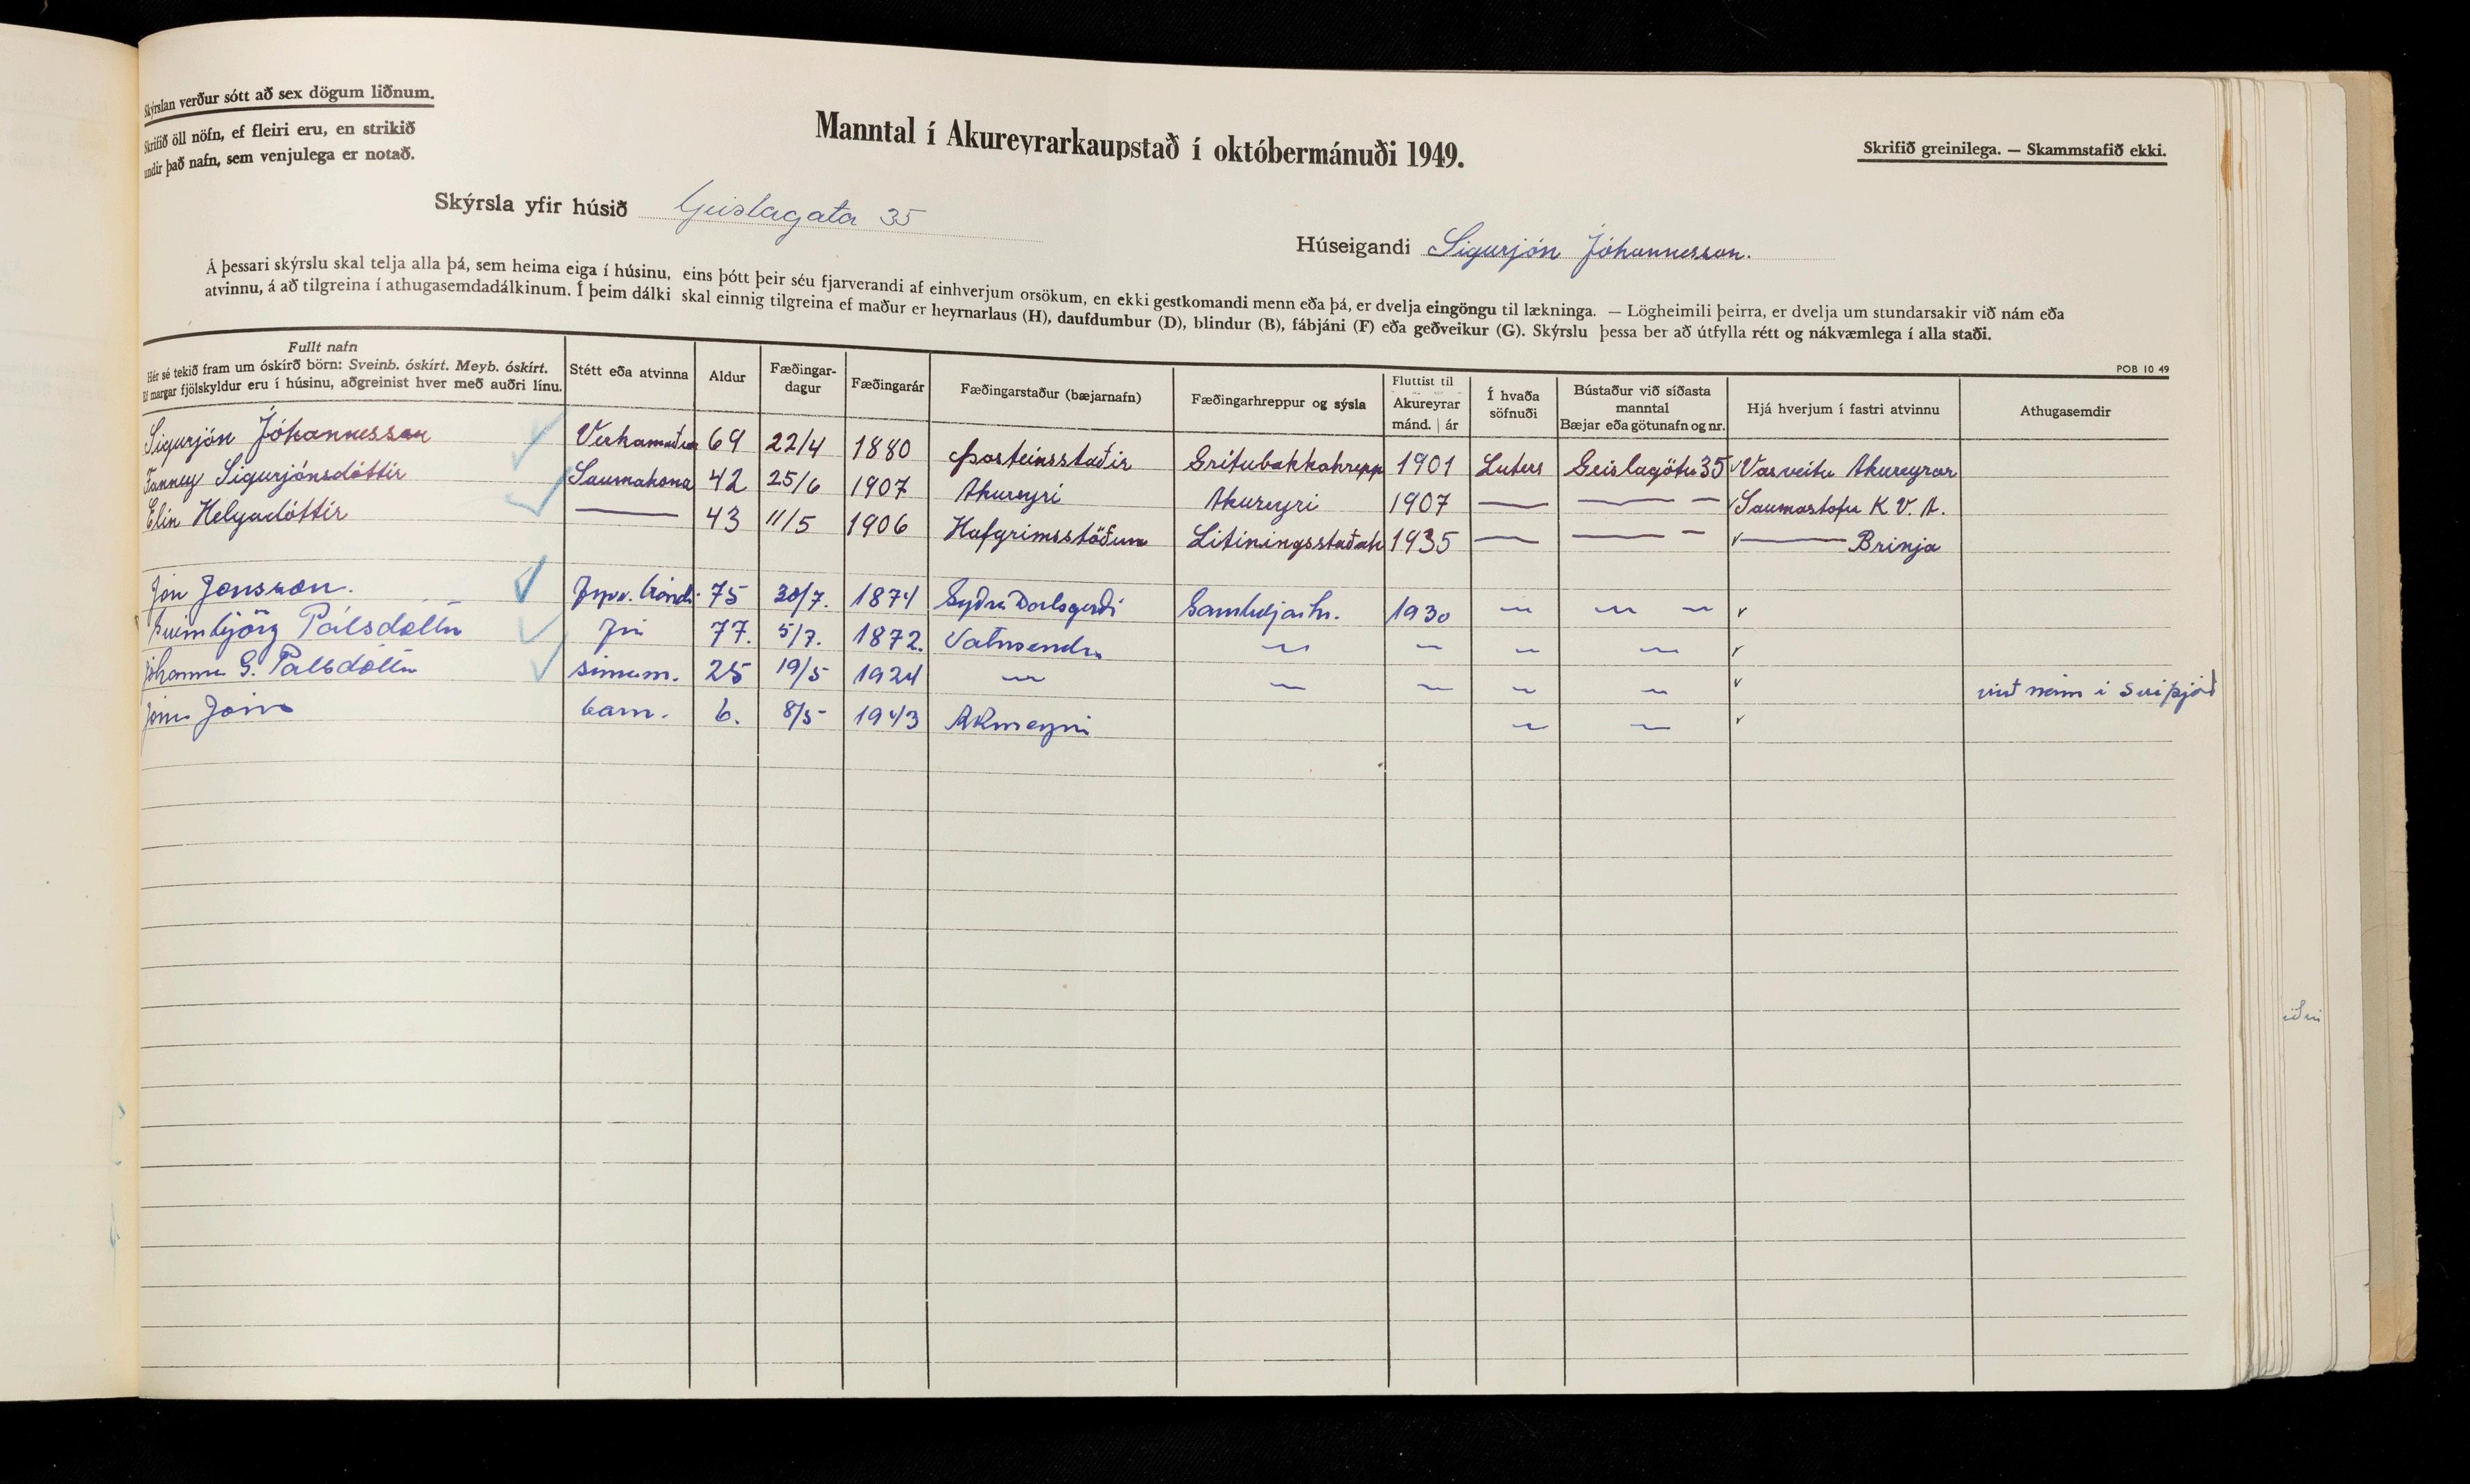 Skýrslan verður sótt að sex dögum liðnum.
Skrifið öll nöfn, ef fleiri eru, en strikið
undir það nafn, sem venjulega er notað.
Manntal í Akureyrarkaupstað í októbermánuði 1949.
Skrifið greinilega. — Skammstafið ekki.
Skýrsla yfir húsið Geislagata 35
Húseigandi Sigurjón Jóhannesson.
Á þessari skýrslu skal telja alla þá, sem heima eiga í húsinu, eins þótt þeir séu fjarverandi af einhverjum orsökum, en ekki gestkomandi menn eða þá, er dvelja eingöngu til lækninga. — Lögheimili þeirra, er dvelja um stundarsakir við nám eða
atvinnu, á að tilgreina í athugasemdadálkinum. Í þeim dálki skal einnig tilgreina ef maður er heyrnarlaus (H), daufdumbur (D), blindur (B), fábjáni (F) eða geðveikur (G). Skýrslu þessa ber að útfylla rétt og nákvæmlega í alla staði.
POB 10 49
Fullt nafn
Hér sé tekið fram um óskírð börn: Sveinb. óskírt. Meyb. óskírt.
Ef margar fjölskyldur eru í húsinu, aðgreinist hver með auðri línu.
Stétt eða atvinna
Aldur
Fæðingar-
dagur
Fæðingarár
Fæðingarstaður (bæjarnafn)
Fæðingarhreppur og sýsla
Fluttist til
Akureyrar
mánd. | ár
Í hvaða
söfnuði
Bústaður við síðasta
manntal
Bæjar eða götunafn og nr.
Hjá hverjum í fastri atvinnu
Athugasemdir
Sigurjón Jóhannesson Verkamaður 69 22/4 1880 Þosteinsstaðir Grítubakkahrepp 1901 Luters Geislagötu 35 Vasveitu Akureyrar
Fanney Sigurjónsdóttir Saumakona 42 25/6 1907 Akureyri Akureyri 1907 — — — Saumastofu K V. A.
Elín Helgadóttir — 43 11/5 1906 Hafgrimsstöðum Litiningsstaðah 1935 — — — — Brinja
Jón Jónsson. 75 30/7. 1874 Syðra Dalsgerði 1930 — — —
Pálsdóttir 77. 5/7. 1872. Vatnsenda — — — —
Jóhanna G. Pálsdóttir 25 19/5 1924 — — — — — við nám í Svíþjóð
barn. 6. 8/5 1943 Akureyri — —